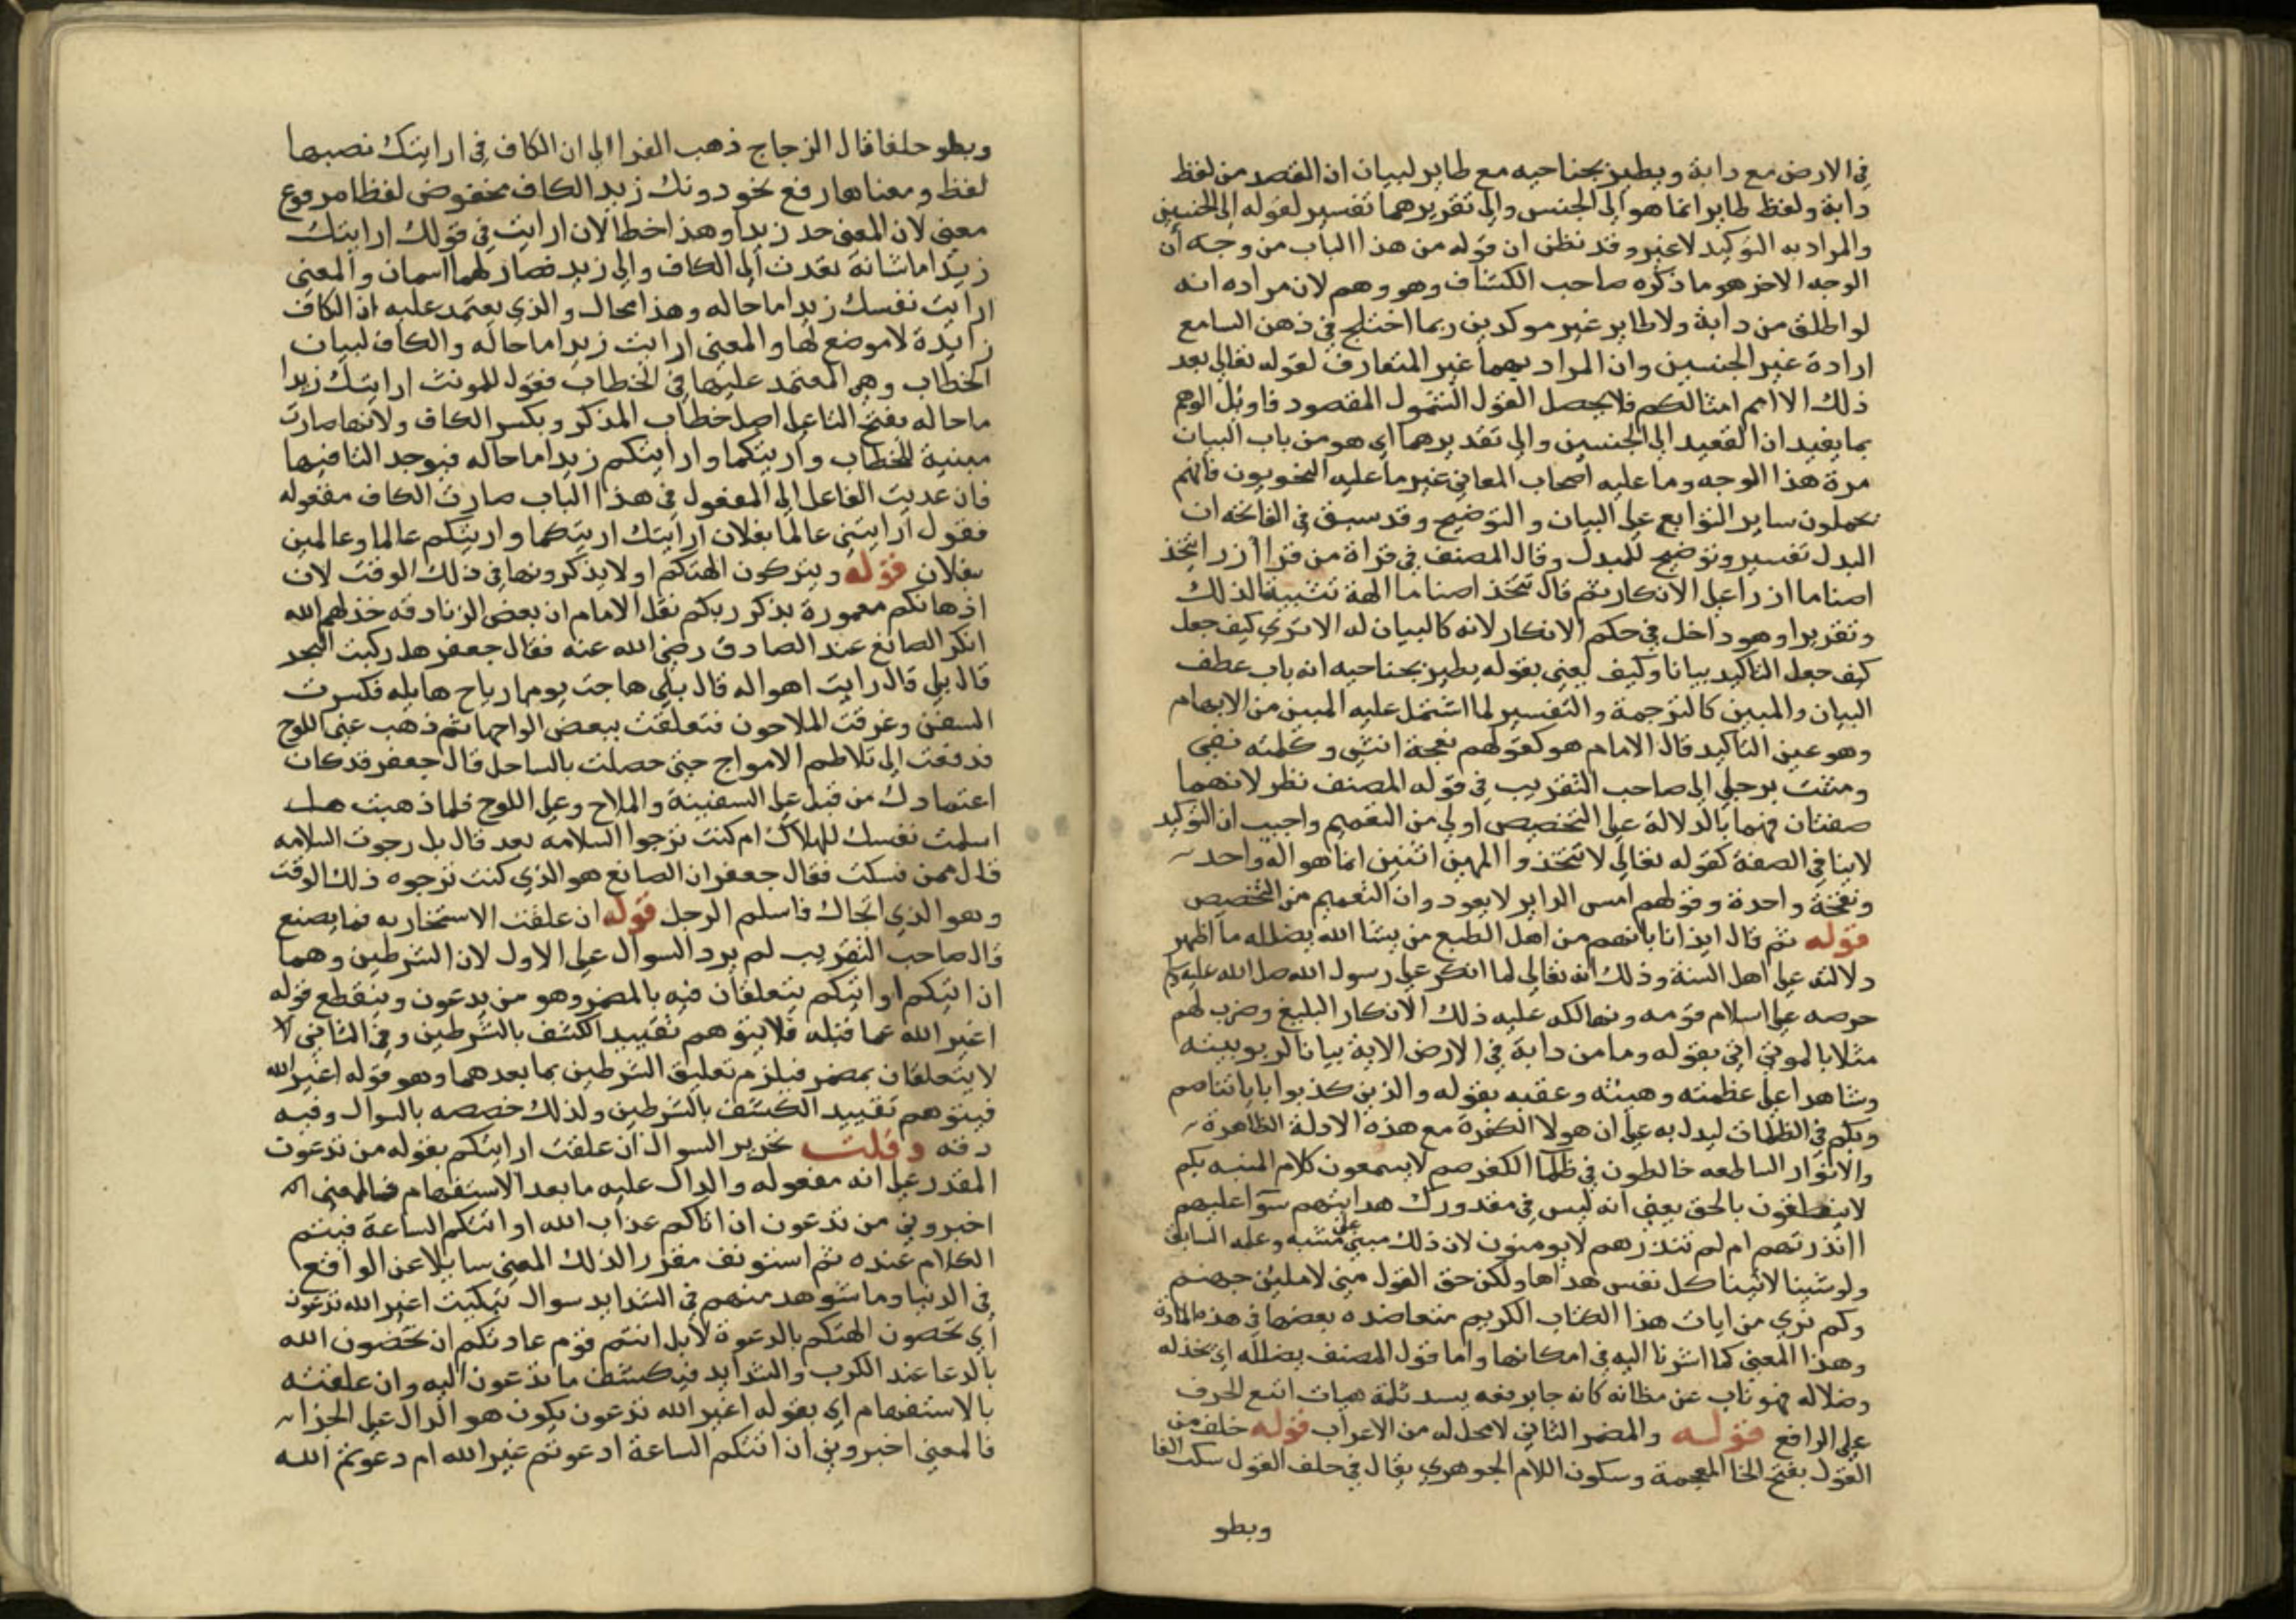 في الارض مع دابة ويطير بجناحيه مع طاير لبيان ان القصد من لفظ
دابة ولفظ طاير انما هو الى الجنس والى تقريرهما تفسير لقوله الى الجنسين
والمراد به التوكيد لا غير وقد نظن ان قوله من هذا الباب من وجه أن
الوجه الاخر هو ما ذكره صاحب الكشاف وهو وهم لان مراده انه
لو اطلق من دابة ولا طاير غير موكدين ربما اختلج في ذهن السامع
ارادة غير الجنسين وان المراد بهما غير المتعارف لقوله تعالى بعد
ذلك الا امم امثالكم فلا يحصل القول الشمول المقصود فاوئل الوهم
بما يفيد ان القصد الى الجنسين والى تقديرهما اي هو من باب البيان
مرة هذا الوجه وما عليه اصحاب المعاني غير ما عليه النحويون فانهم
يحملون ساير التوابع على البيان والتوضيح وقد سبق في الفاتحة ان
البدل تفسير وتوضيح للمبدل وقال المصنف في قراة من قرا أازرا تتخذ
اصناما ازرا على الانكار ثم قال تتخذ اصناما الهة تثبيتا لذلك
وتقريرا وهو داخل في حكم الانكار لانه كالبيان له الا ترى كيف جعل
كيف جعل التاكيد بيانا وكيف يعني بقوله يطير بجناحيه انه باب عطف
البيان والمبين كالترجمة والتفسير لما اشتمل عليه المبين من الابهام
وهو عين التاكيد قال الامام هو كقولهم نعجة انثى وكلمته بفي
ومشت برجلي الى صاحب التقريب في قوله المصنف نظر لانهما
صفتان فهما بالدلالة على التخصيص اولى من التعميم واجيب ان التوكيد
لا ينافي الصفة كقوله تعالى لا تتخذوا الهين اثنين انما هو اله واحد
ونفخة واحدة وقولهم امس الدابر لا يعود وان التعميم من التخصيص
قوله ثم قال ايذانا بانهم من اهل الطبع من يشا الله يضلله ما اظهر
دلالته على اهل السنة وذلك انه تعالى لما انكر على رسول الله صلى الله عليه وسلم
حرصه على اسلام قومه وتهالكه عليه ذلك الانكار البليغ وضرب لهم
مثلا بالموتى اتى بقوله وما من دابة في الارض الاية بيانا لربوبيته
وشاهدا على عظمته وهيبته وعقبه بقوله والذين كذبوا باياتنا صم
وبكم في الظلمات ليدل به على ان هولا الكفرة مع هذه الادلة الظاهرة
والانوار الساطعه خالطون في ظلما الكفر صم لا يسمعون كلام المنبه بكم
لا ينطقون بالحق يعني انه ليس في مقدورك هدايتهم سوآ عليهم
اانذرتهم ام لم تنذرهم لا يومنون لان ذلك مبني على مشيه وعلمه السابق
ولو شينا لاتينا كل نفس هداها ولكن حق القول مني لاملئن جهنم
وكم ترى من ايات هذا الكتاب الكريم متعاضده بعضها في هذه المادة
وهذا المعنى كما اشرنا اليه في امكانها واما قول المصنف يضلله اي يخذله
وضلاله فهو ناب عن مظانه كانه جا يرفعه يسد ثلمة هيهات اتسع الخرق
على الراقع قوله والمضمر الثاني لا محل له من الاعراب قوله خلف من
القول بفتح الخا المعجمة وسكون اللام الجوهري يقال في خلف القول سكت الفا
وبطو
وبطو خلفا قال الزجاج ذهب الفرا الى ان الكاف في ارايتك نصبها
لفظ ومعناها رفع نحو دونك زيد الكاف مخفوض لفظا مرفوع
معنى لان المعنى خذ زيدا وهذا خطا لان ارايت في قولك ارايتك
زيدا ما شانه تعدت الى الكاف والى زيد فصار لهما اسمان والمعنى
ارايت نفسك زيدا ما حاله وهذا محال والذي يعتمد عليه ان الكاف
زايدة لا موضع لها والمعنى ارايت زيدا ما حاله والكاف لبيان
الخطاب وهي المعتمد عليها في الخطاب فقول للمونث ارايتك زيدا
ما حاله بفتح التا على اصل خطاب المذكر وبكسر الكاف ولانها صارت
مبنية للخطاب واريتكما وارايتكم زيدا ما حاله فيوحد التا فيها
فان عديت الفاعل الى المفعول في هذا الباب صارت الكاف مفعوله
فقول ارايتني عالما بفلان ارايتك اريتكما واريتكم عالما وعالمين
بفلان قوله ويتركون الهتكم او لا يذكرونها في ذلك الوقت لان
اذهانكم معمورة بذكر ربكم نقل الامام ان بعض الزنادقه خذلهم الله
انكر الصانع عند الصادق رضي الله عنه فقال جعفر هل ركبت البحر
قال بلى قال رايت اهواله قال بلى هاجت يوما رياح هايله فكسرت
السفن وغرقت الملاحون فتعلقت ببعض الواحها ثم ذهب عني اللوح
فدفعت الى تلاطم الامواج حتى حصلت بالساحل قال جعفر قد كان
اعتمادك من قبل على السفينة والملاح وعلى اللوح فلما ذهبت هل
اسلمت نفسك للهلاك ام كنت ترجوا السلامه بعد قال بل رجوت السلامه
قال ممن فسكت فقال جعفر ان الصانع هو الذي كنت ترجوه ذلك الوقت
وهو الذي انجاك فاسلم الرجل قوله ان علقت الاستخبار به فما يصنع
قال صاحب التقريب لم يرد السوال على الاول لان الشرطين وهما
ان اتيكم او اتيكم يتعلقان فيه بالمضمر وهو من يدعون وينقطع قوله
اغير الله عما قبله فلا يتوهم تقييد الكشف بالشرطين وفي الثاني لا
لا يتعلقان بمضمر فيلزم تعليق الشرطين بما بعدهما وهو قوله اغير الله
فيتوهم تقييد الكشف بالشرطين ولذلك خصصه بالسوال وفيه
دقه وقلت تحرير السوال ان علقت ارايتكم بقوله من تدعون
المقدر على انه مفعوله والدال عليه ما بعد الاستفهام فالمعنى
اخبروني من تدعون ان اتاكم عذاب الله او اتتكم الساعة فيتم
الكلام عنده ثم استونف مقررا لذلك المعنى سايلا عن الواقع
في الدنيا وما شوهد منهم في الشدايد سوال تبكيت اغير الله تدعون
اي تخصون الهتكم بالدعوة لا بل انتم قوم عادتكم ان تخصون الله
بالدعا عند الكرب والشدايد فيكشف ما تدعون اليه وان علقته
بالاستفهام اي بقوله اغير الله تدعون يكون هو الدال على الجزا
فالمعنى اخبروني ان اتتكم الساعة ادعوتم غير الله ام دعوتم الله